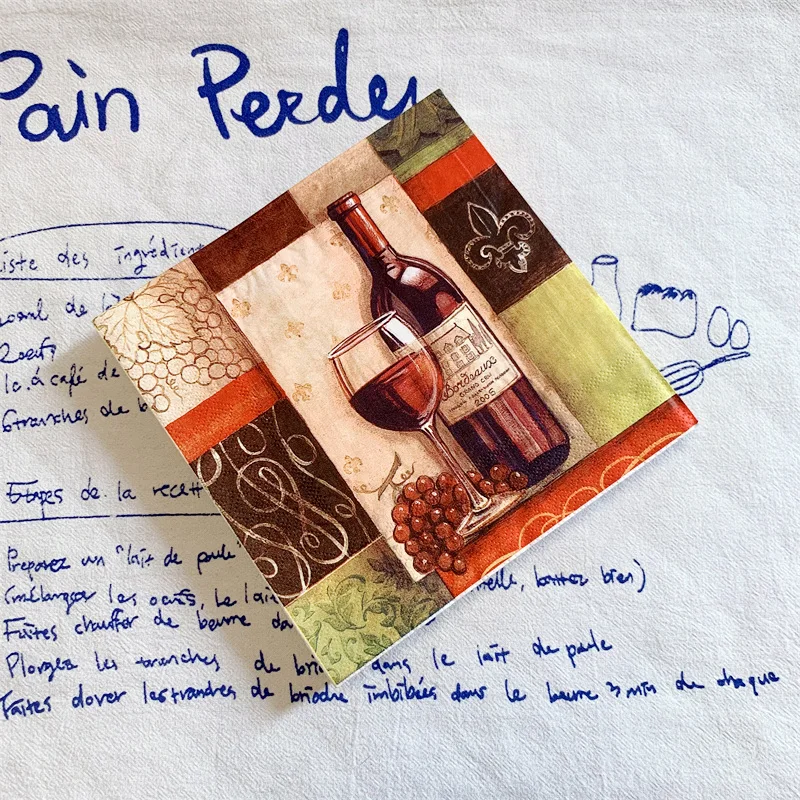 Pain Perdu
Liste des ingrédient
de
2 oeufs
1c. à café de
6 tranches de b
Etapes de la recett
Preparez un "lait de poule
(mélangez les oeufs, le lait
elle, battez bien)
Faites chauffer de beurre da
Plongez les tranches de bri dans le lait de poule
Faites dorer les tranches de brioche imbibées dans le beurre 3 min de chaque
Bordeaux
GRAND CRU
2005